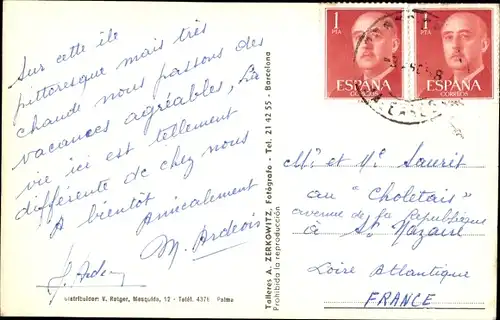 Sur cette île
pittoresque mais très
chaude nous passons des
vacances agréables, La
vie ici est tellement
différente de chez nous
A bientôt Amicalement
M. Ardeois
Distribuidor: V. Rotger, Mesquida, 12 - Teléf. 4371 Palma
Talleres A. ZERKOWITZ - Fotógrafo - Tel. 21 42 55 - Barcelona
Prohibida la reproducción
1
PTA
ESPAÑA
CORREOS
1
PTA
ESPAÑA
CORREOS
Mr et Me Saurit
au "Choletais"
avenue de la République
à St Nazaire
Loire Atlantique
FRANCE